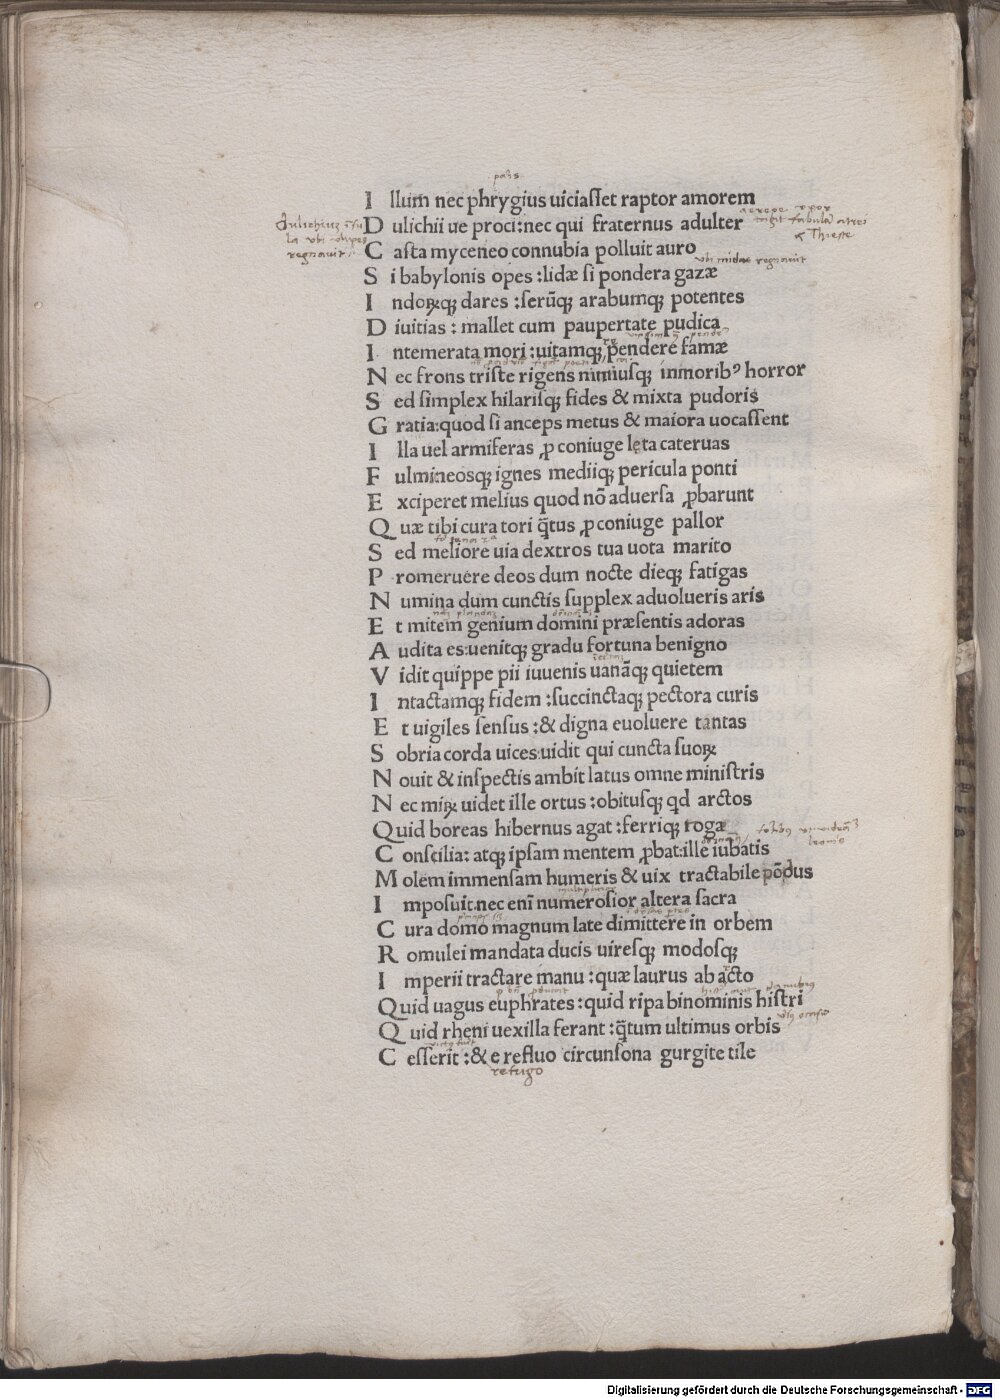 paris
I llum nec phrygius uiciasset raptor amorem
D ulichii ue proci:nec qui fraternus adulter
C asta myceneo connubia polluit auro
regnauit
ubi midas regnauit
S i babylonis opes :lidæ si pondera gazæ
I ndoꝝqꝫ dares :serūqꝫ arabumqꝫ potentes
D iuitias : mallet cum paupertate pudica
I ntemerata mori :uitamqꝫ pendere famæ
N ec frons triste rigens nimiusqꝫ inmoribꝰ horror
S ed simplex hilarisqꝫ fides & mixta pudoris
G ratia:quod si anceps metus & maiora uocassent
I lla uel armiferas ꝓ coniuge lęta cateruas
F ulmineosqꝫ ignes mediiqꝫ pericula ponti
E xciperet melius quod nō aduersa ꝓbarunt
Q uæ tibi cura tori q̄tus ꝓ coniuge pallor
S ed meliore uia dextros tua uota marito
P romeruere deos dum nocte dieqꝫ fatigas
N umina dum cunctis supplex aduolueris aris
E t mitem genium domini præsentis adoras
A udita es:uenitqꝫ gradu fortuna benigno
V idit quippe pii iuuenis uanāqꝫ quietem
I ntactamqꝫ fidem :succinctaqꝫ pectora curis
E t uigiles sensus :& digna euoluere tantas
S obria corda uices:uidit qui cuncta suoꝝ
N ouit & inspectis ambit latus omne ministris
N ec miꝝ uidet ille ortus :obitusqꝫ qd arctos
Q uid boreas hibernus agat :ferriqꝫ rogæ
C onscilia: atqꝫ ipsam mentem ꝓbat:ille iubatis
M olem immensam humeris & uix tractabile pōdus
I mposuit:nec enī numerosior altera sacra
C ura domo magnum late dimittere in orbem
R omulei mandata ducis uiresqꝫ modosqꝫ
I mperii tractare manu :quæ laurus ab arcto
Q uid uagus euphrates :quid ripa binominis histri
Q uid rheni uexilla ferant :q̄tum ultimus orbis
C esserit :& e refluo circunsona gurgite tile
refugo
Digitalisierung gefördert durch die Deutsche Forschungsgemeinschaft - DFG